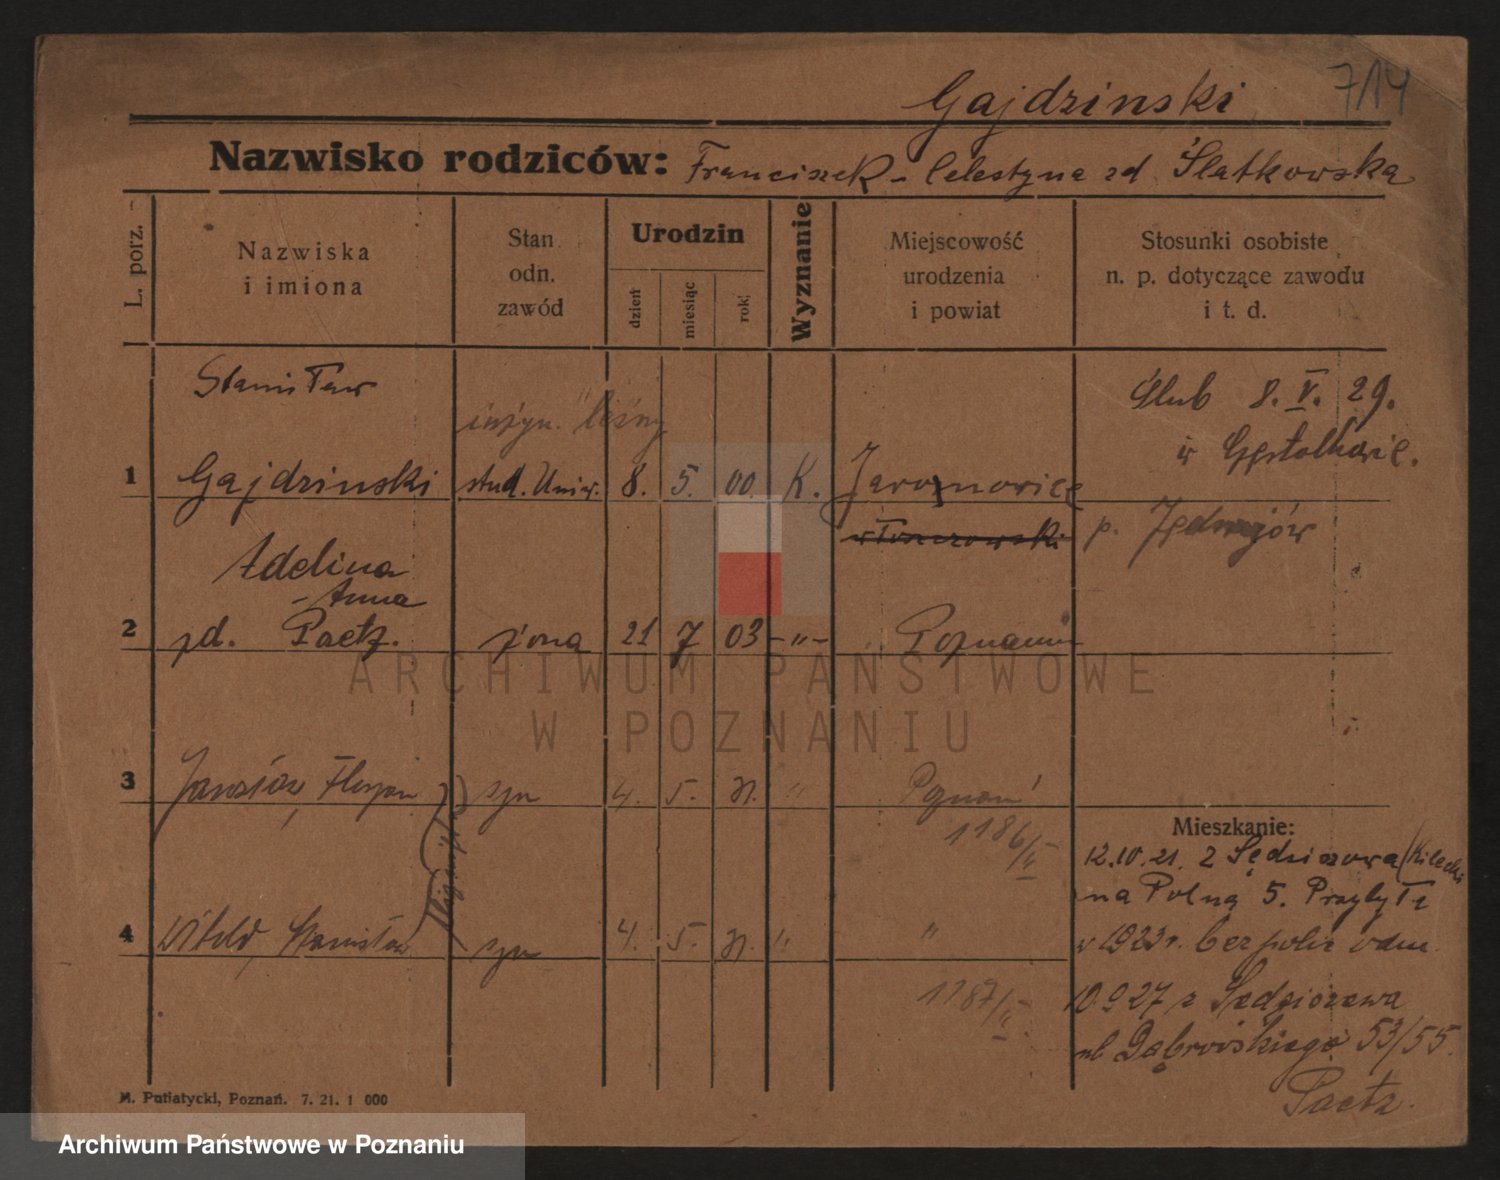 714
Gajdzinski
Nazwisko rodziców: Franciszek - Celestyna zd. Slatkowska
L. porz.
Nazwiska
i imiona
Stan
odn.
zawód
Urodzin
dzień
miesiąc
rok
Wyznanie
Miejscowość
urodzenia
i powiat
Stosunki osobiste
n. p. dotyczące zawodu
i t. d.
Stanisław
inżyn. leśny
Ślub 8. V. 29.
w
1 Gajdzinski stud. Uniw. 8. 5. 00. K. Jaronowice
włoszczowski
p. Jędrzejów
Adelina
- Anna
2 zd. Paetz. żona 21 7 03 -"- Poznaniu
3 Florjan syn 4. 5. " Poznań
1186/II
bliźnięta
4 Witold, Stanisław syn 4. 5. " "
1187/II
Mieszkanie:
12.IV.21. z Sędziszowa (Kielecki
na Polną 5. Przybył
w 1923 r. bez polic odm.
10 9 27 z Sędziszowa
ul. Dąbrowskiego 53/55.
Paetz.
M. Putiatycki, Poznań. 7. 21. 1 000
ARCHIWUM PAŃSTWOWE
W POZNANIU
Archiwum Państwowe w Poznaniu